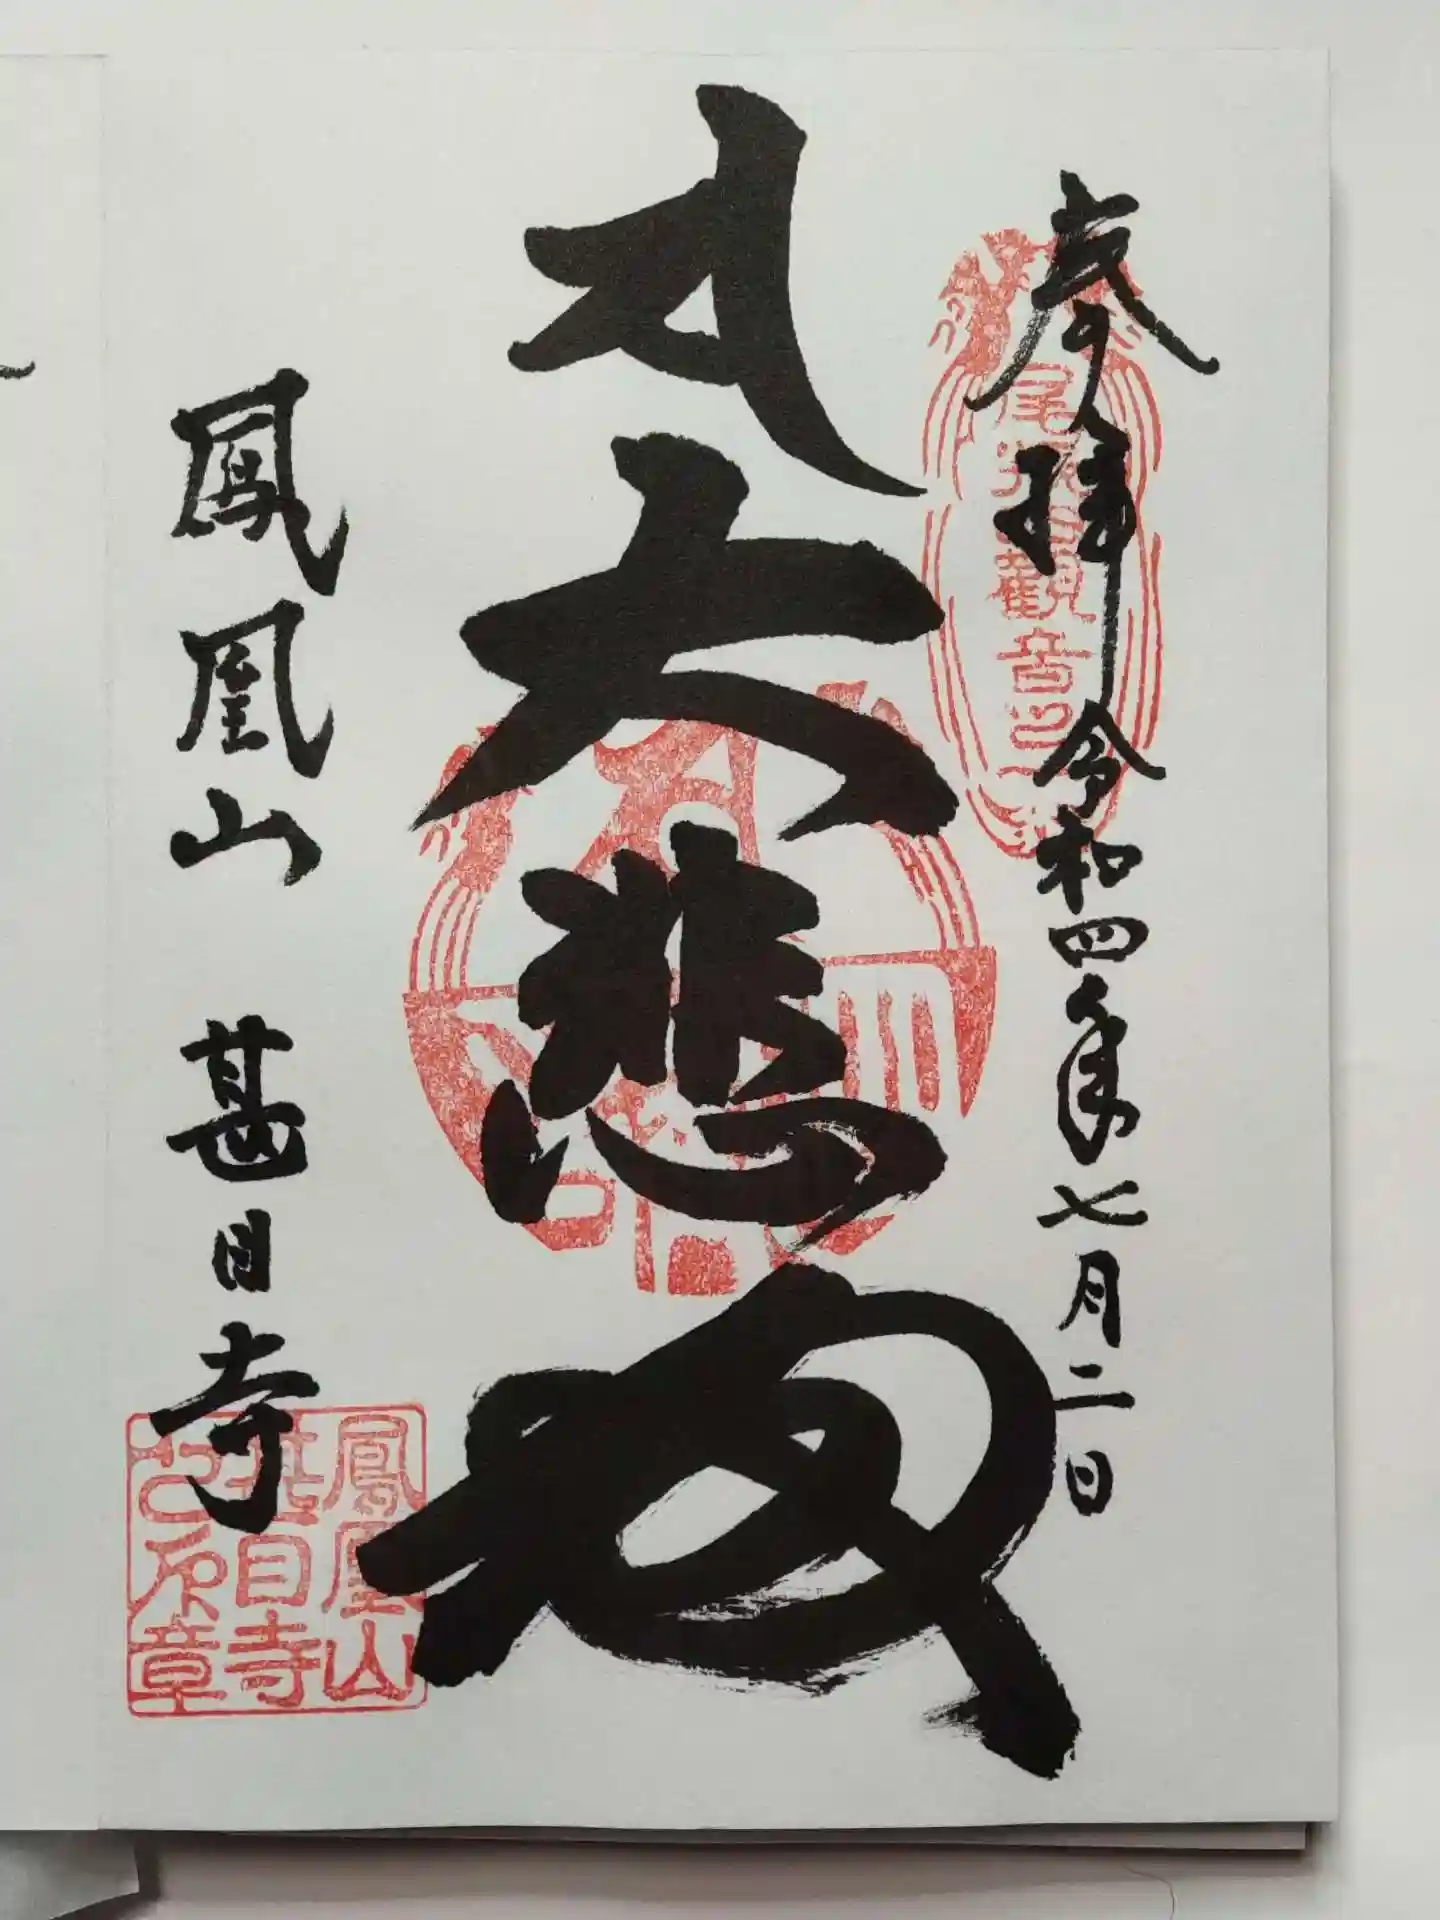 奉拝 令和四年七月二日
尾張観音
大悲殿
鳳凰山 甚目寺
鳳凰山
甚目寺
之印章